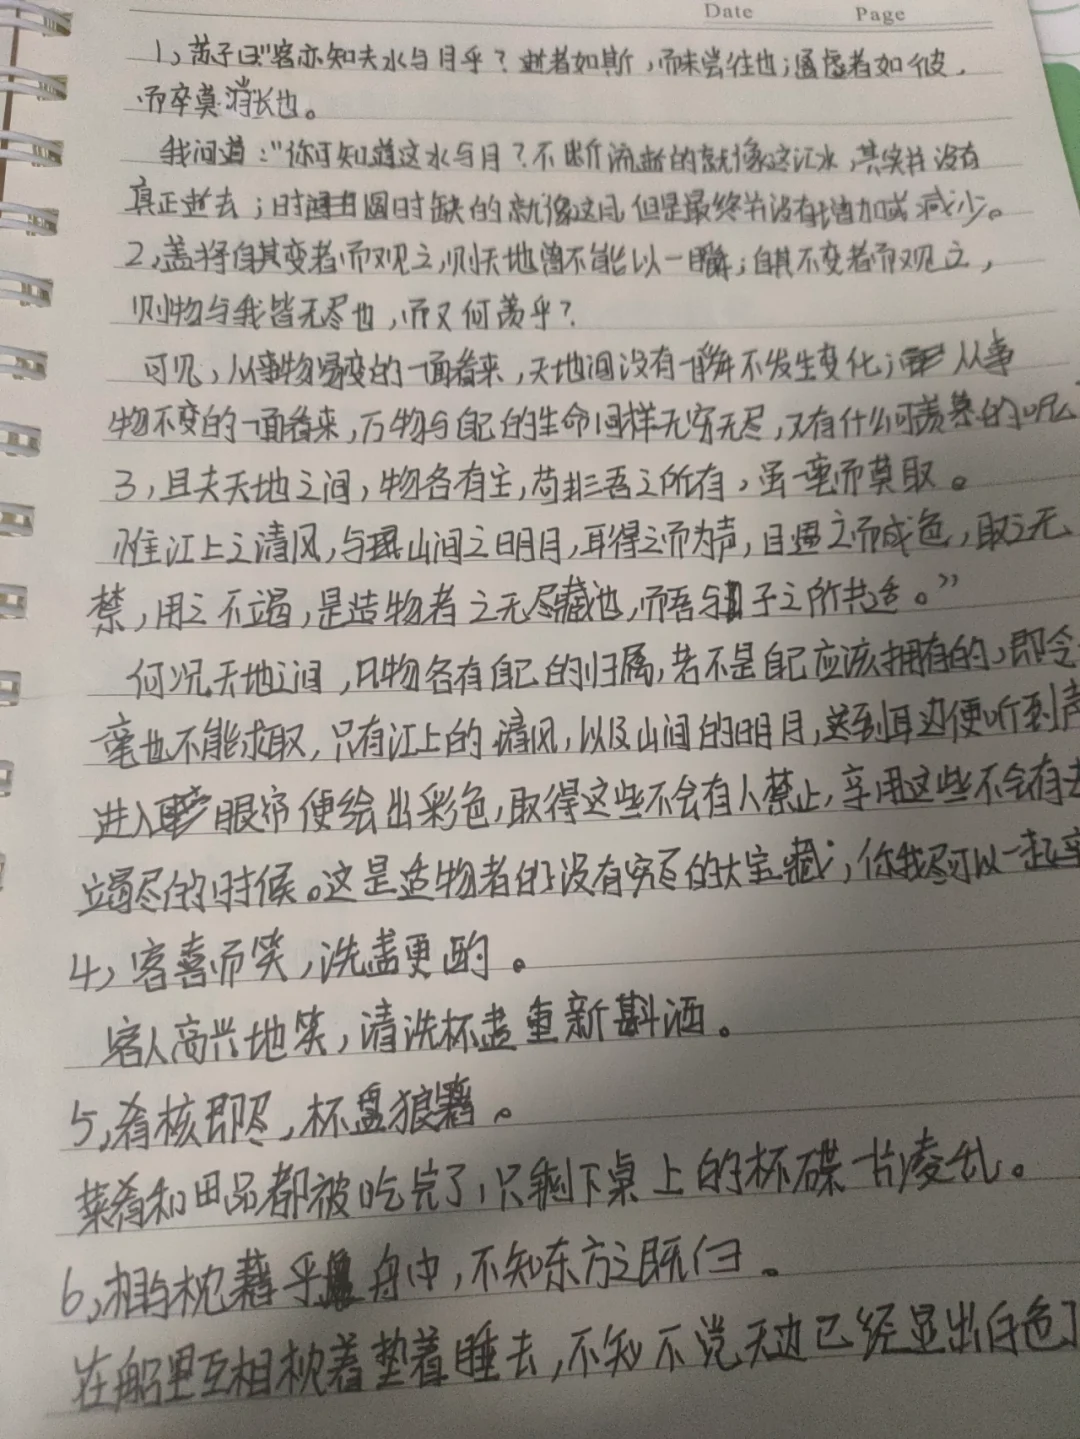 Date Page
1,苏子曰"客亦知夫水与月乎?逝者如斯,而未尝往也;盈虚者如彼,
而卒莫消长也。
我问道:"你可知道这水与月?不断流逝的就像这江水,其实并没有
真正逝去;时圆时缺的就像这月,但是最终并没有增加或减少。
2,盖将自其变者而观之,则天地曾不能以一瞬;自其不变者而观之,
则物与我皆无尽也,而又何羡乎?
可见,从事物易变的一面看来,天地间没有一瞬不发生变化;从事
物不变的一面看来,万物与自己的生命同样无穷无尽,又有什么可羡慕的呢
3,且夫天地之间,物各有主,苟非吾之所有,虽一毫而莫取。
惟江上之清风,与山间之明月,耳得之而为声,目遇之而成色,取之无
禁,用之不竭,是造物者之无尽藏也,而吾与子之所共适。"
何况天地之间,凡物各有自己的归属,若不是自己应该拥有的,即令
毫也不能求取,只有江上的清风,以及山间的明月,送到耳边便听到声
进入眼帘便绘出彩色,取得这些不会有人禁止,享用这些不会有
竭尽的时候。这是造物者的没有穷尽的大宝藏,你我尽可以一起
4,客喜而笑,洗盏更酌。
客人高兴地笑,清洗杯盏重新斟酒。
5,肴核即尽,杯盘狼藉。
菜肴和果品都被吃完了,只剩下桌上的杯碟一片凌乱。
6,相与枕藉乎舟中,不知东方之既白。
在船里互相枕着垫着睡去,不知不觉天边已经显出白色